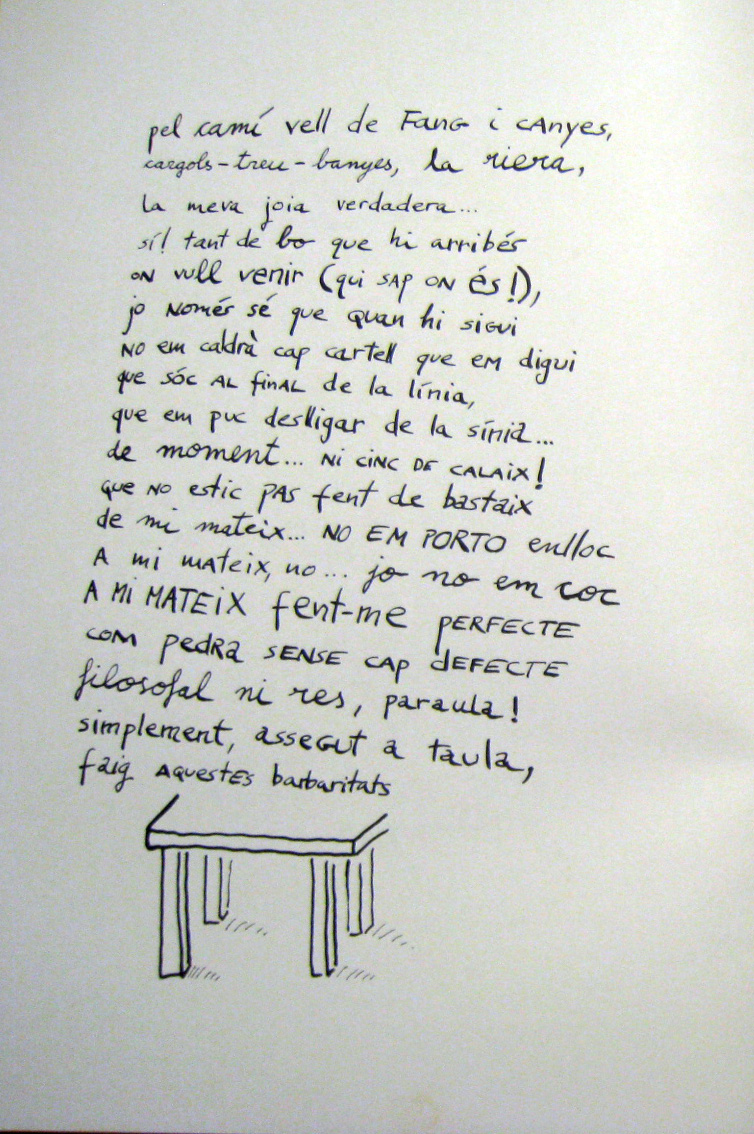 pel camí vell de Fang i cAnyes,
cargols-treu-banyes, la riera,
la meva joia verdadera...
sí! tant de bo que hi arribés
ON vull venir (qui SAP ON és!),
jo Només sé que quan hi sigui
NO em caldrà cap cartell que em digui
que sóc AL fiNAL de la línia,
que em puc deslligar de la sínia...
de moment... Ni ciNc DE CALAIX!
que NO estic PAS fent de bastaix
de mi mateix... NO EM PORTO enlloc
A mi mateix, no... jo no em coc
A Mi MATEiX fent-me PERFECTE
com pedRa SENSE CAP dEFECTE
filosofal ni res, paraula!
simplement, asseGut a taula,
faig AquestEs barbaritats